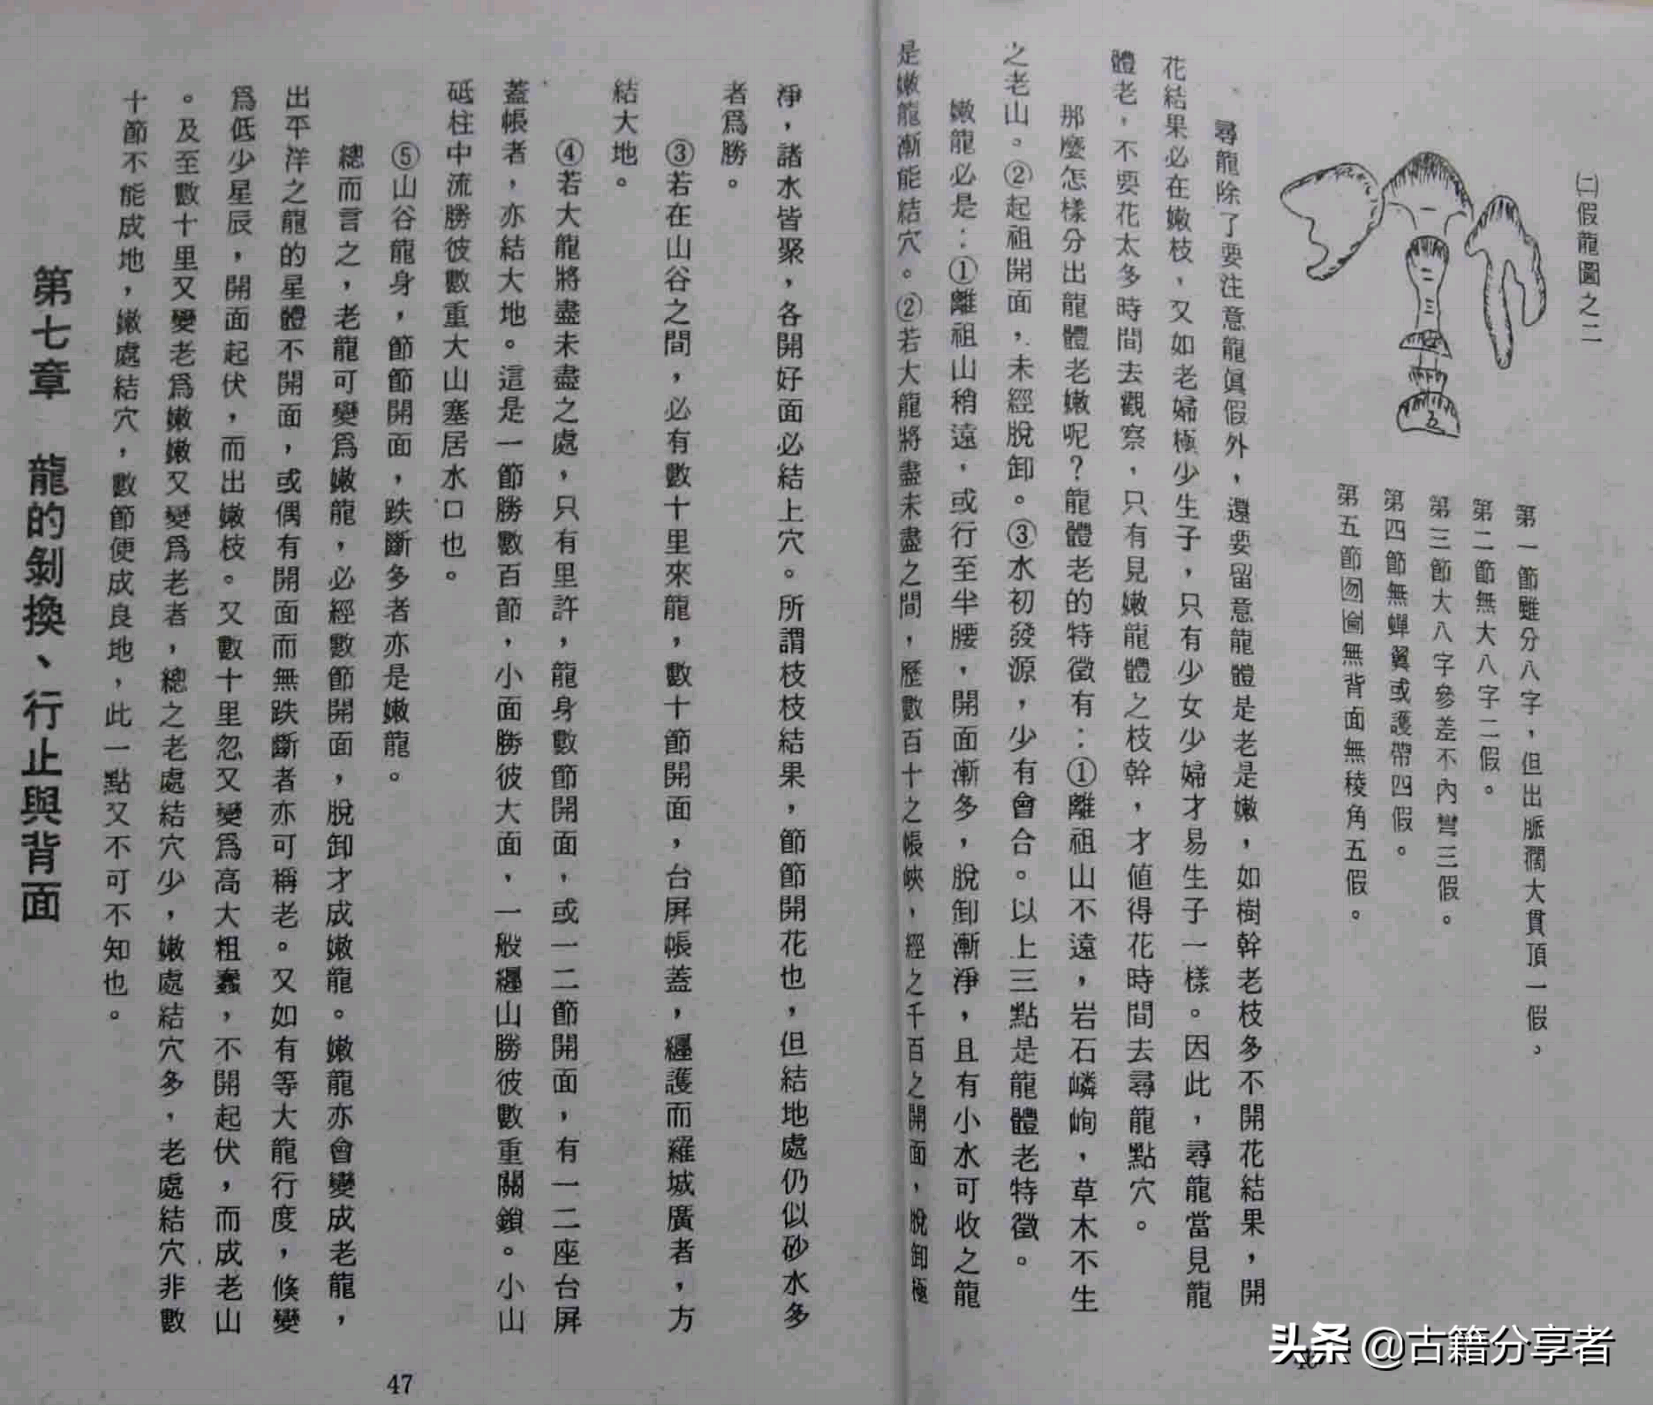 ㈡假龍圖之二
一
二
三
四
五
第一節雖分八字，但出脈濶大貫頂一假，
第二節無大八字二假。
第三節大八字參差不內彎三假。
第四節無蟬翼或護帶四假。
第五節囫圇無背面無稜角五假。
尋龍除了要注意龍眞假外，還要留意龍體是老是嫩，如樹幹老枝多不開花結果，開
花結果必在嫩枝，又如老婦極少生子，只有少女少婦才易生子一樣。因此，尋龍當見龍
體老，不要花太多時間去觀察，只有見嫩龍體之枝幹，才値得花時間去尋龍點穴。
那麼怎樣分出龍體老嫩呢？龍體老的特徵有：①離祖山不遠，岩石嶙峋，草木不生
之老山。②起祖開面，未經脫卸。③水初發源，少有會合。以上三點是龍體老特徵。
嫩龍必是：①離祖山稍遠，或行至半腰，開面漸多，脫卸漸淨，且有小水可收之龍
是嫩龍漸能結穴。②若大龍將盡未盡之間，歷數百十之帳峽，經之千百之開面，脫卸極
淨，諸水皆聚，各開好面必結上穴。所謂枝枝結果，節節開花也，但結地處仍似砂水多
者爲勝。
③若在山谷之間，必有數十里來龍，數十節開面，台屏帳蓋，纒護而羅城廣者，方
結大地。
④若大龍將盡未盡之處，只有里許，龍身數節開面，或一二節開面，有一二座台屏
蓋帳者，亦結大地。這是一節勝數百節，小面勝彼大面，一般纒山勝彼數重關鎖。小山
砥柱中流勝彼數重大山塞居水口也。
⑤山谷龍身，節節開面，跌斷多者亦是嫩龍。
總而言之，老龍可變爲嫩龍，必經數節開面，脫卸才成嫩龍。嫩龍亦會變成老龍，
出平洋之龍的星體不開面，或偶有開面而無跌斷者亦可稱老。又如有等大龍行度，倏變
爲低少星辰，開面起伏，而出嫩枝。又數十里忽又變爲高大粗蠢，不開起伏，而成老山
。及至數十里又變老爲嫩嫩又變爲老者，總之老處結穴少，嫩處結穴多，老處結穴非數
十節不能成地，嫩處結穴，數節便成良地，此一點又不可不知也。
第七章　龍的剝換、行止與背面
47
头条 @古籍分享者